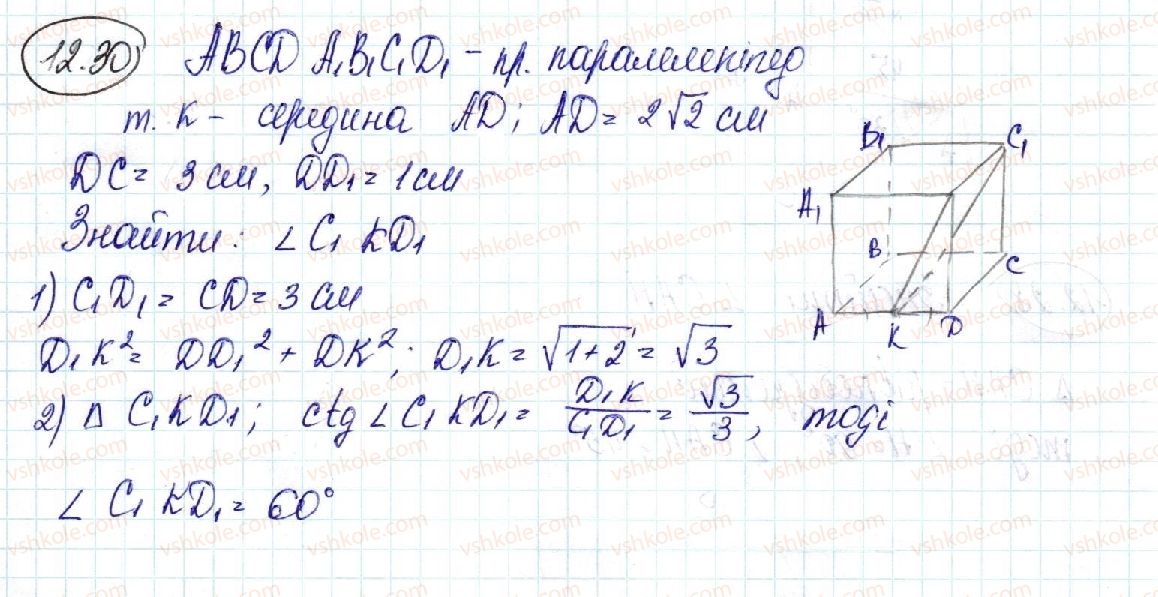 12.30) ABCD A₁B₁C₁D₁ - пр. паралелепіпед
т. K - середина AD; AD = 2√2 см
DC = 3 см, DD₁ = 1 см
Знайти: ∠ C₁ KD₁
1) C₁D₁ = CD = 3 см
D₁K² = DD₁² + DK²; D₁K = √1+2 = √3
2) Δ C₁KD₁; ctg ∠ C₁KD₁ = D₁K/C₁D₁ = √3/3, тоді
∠ C₁ KD₁ = 60°
B₁ C₁
A₁
B C
A K D
vshkole.com